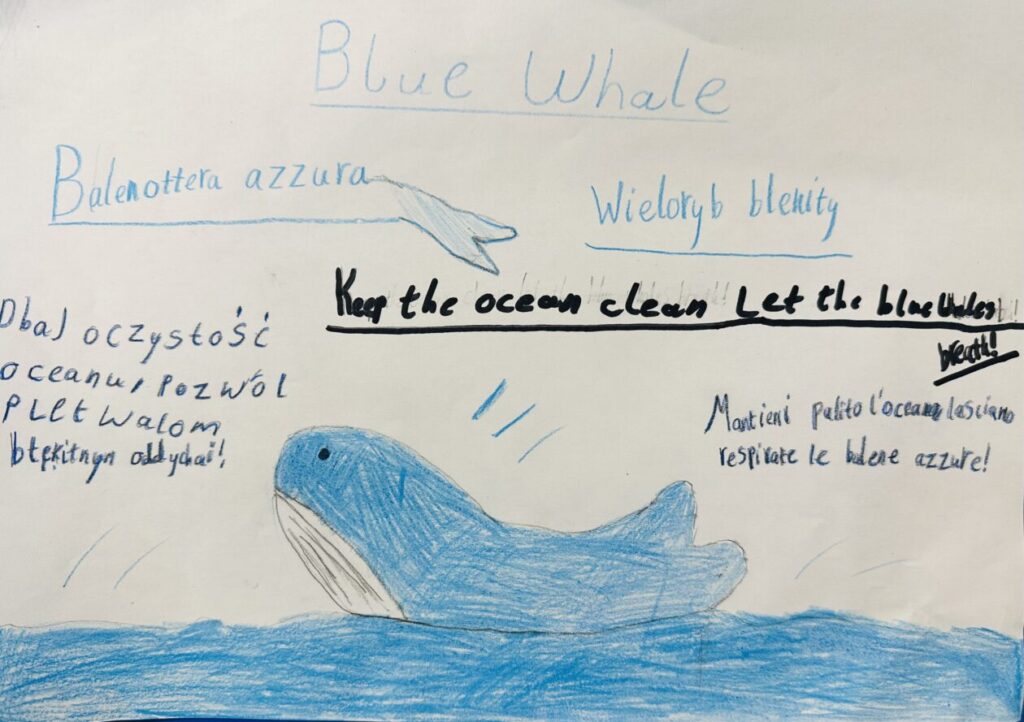 Blue Whale
Balenottera azzura
Wieloryb blenity
Keep the ocean clean Let the blue Whales
breath!
Dbaj oczystość
oceanu, pozwól
PLEtwalom
błękitnyn oddychai!
Mantieni pulito l'ocean lasciano
respirate le balene azzure!